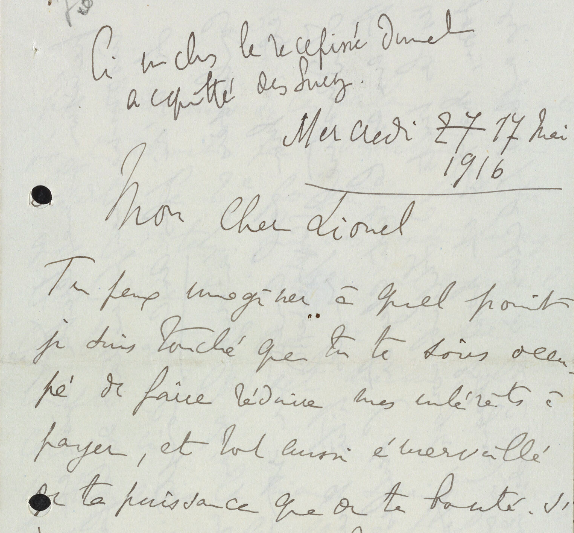 Ci inclus le recepissé
acquitté des Suez.
Mercredi 27 17 Mai
1916
Mon cher Lionel
Tu peux imaginer à quel point
je suis touché que tu te sois occu-
pé de faire réduire mes intérêts à
payer, et tout aussi émerveillé
de ta puissance que de ta bonté. S'